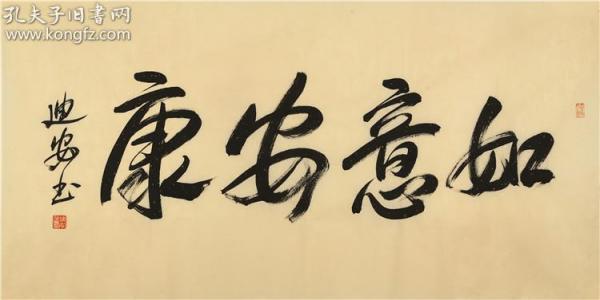 孔夫子旧书网
www.kongfz.com
如意安康
迪安书